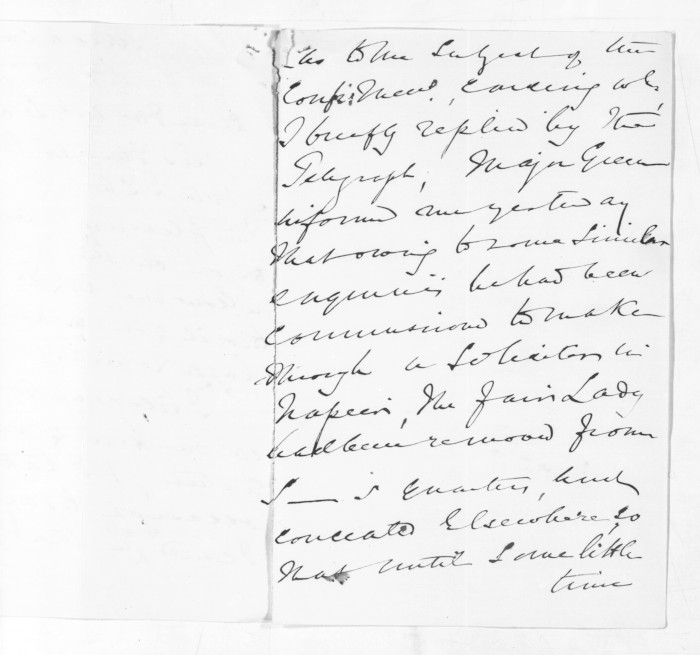 as to the subject of the
Confinement, enquiry wh.
I briefly replied by the
Telegraph, Major Green
informed me yesterday
that owing to some similar
enquiries he had been
commissioned to make
through a Solicitor in
Napier, the fair Lady
had been removed from
S—'s quarters, and
concealed Elsewhere, so
that until some little
time